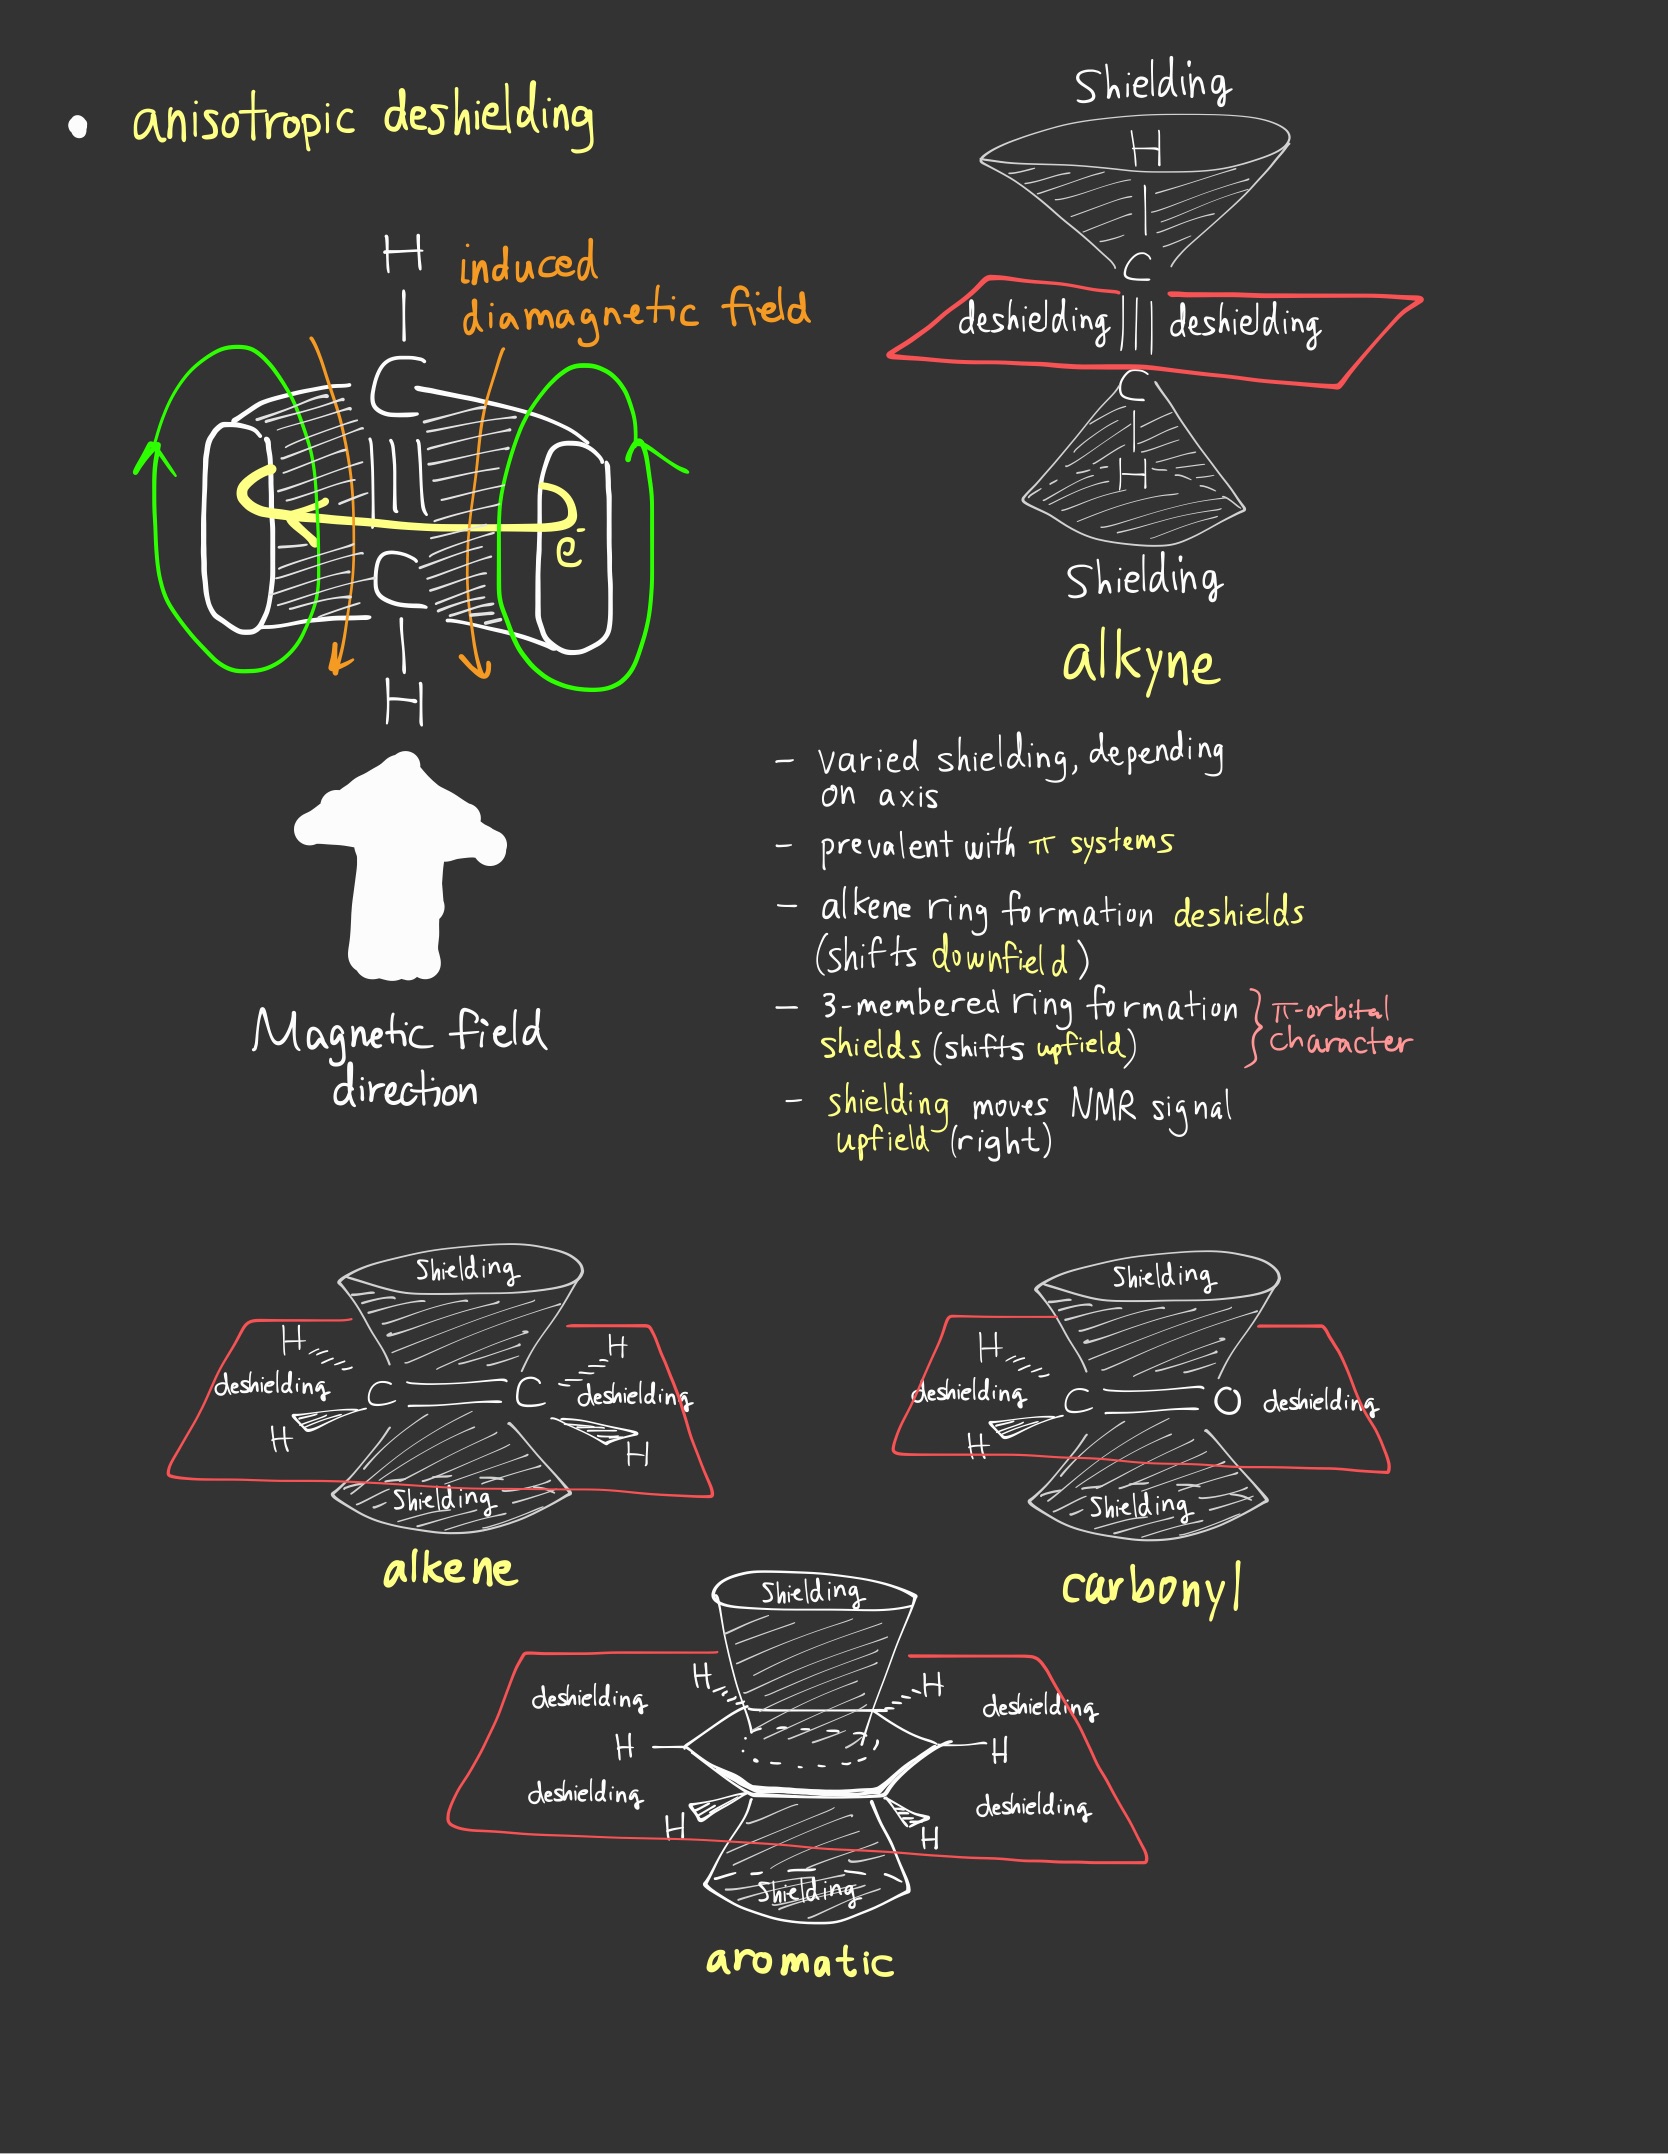 • anisotropic deshielding
H
|
C
|||
C
|
H
induced
diamagnetic field
e⁻
Magnetic field
direction
Shielding
H
|
C
deshielding ||| deshielding
C
|
H
Shielding
alkyne
- varied shielding, depending
on axis
- prevalent with π systems
- alkene ring formation deshields
(shifts downfield)
- 3-membered ring formation
shields (shifts upfield)
} π-orbital
character
- shielding moves NMR signal
upfield (right)
Shielding
H H
deshielding C = C deshielding
H H
Shielding
alkene
Shielding
H
deshielding C = O deshielding
H
Shielding
carbonyl
Shielding
H H
deshielding deshielding
H H
deshielding deshielding
H H
Shielding
aromatic